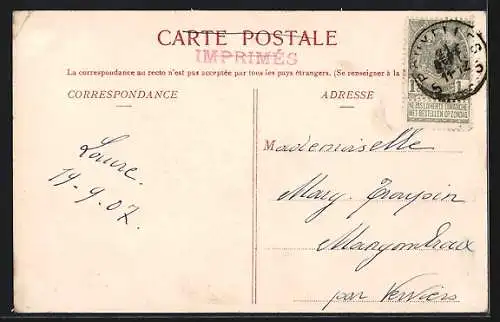 CARTE POSTALE
IMPRIMÉS
La correspondance au recto n'est pas acceptée par tous les pays étrangers. (Se renseigner à la
CORRESPONDANCE
ADRESSE
1 1
NE PAS LIVRER LE DIMANCHE
NIET BESTELLEN OP ZONDAG
Mademoiselle
Mary
par Verviers
19-9-07